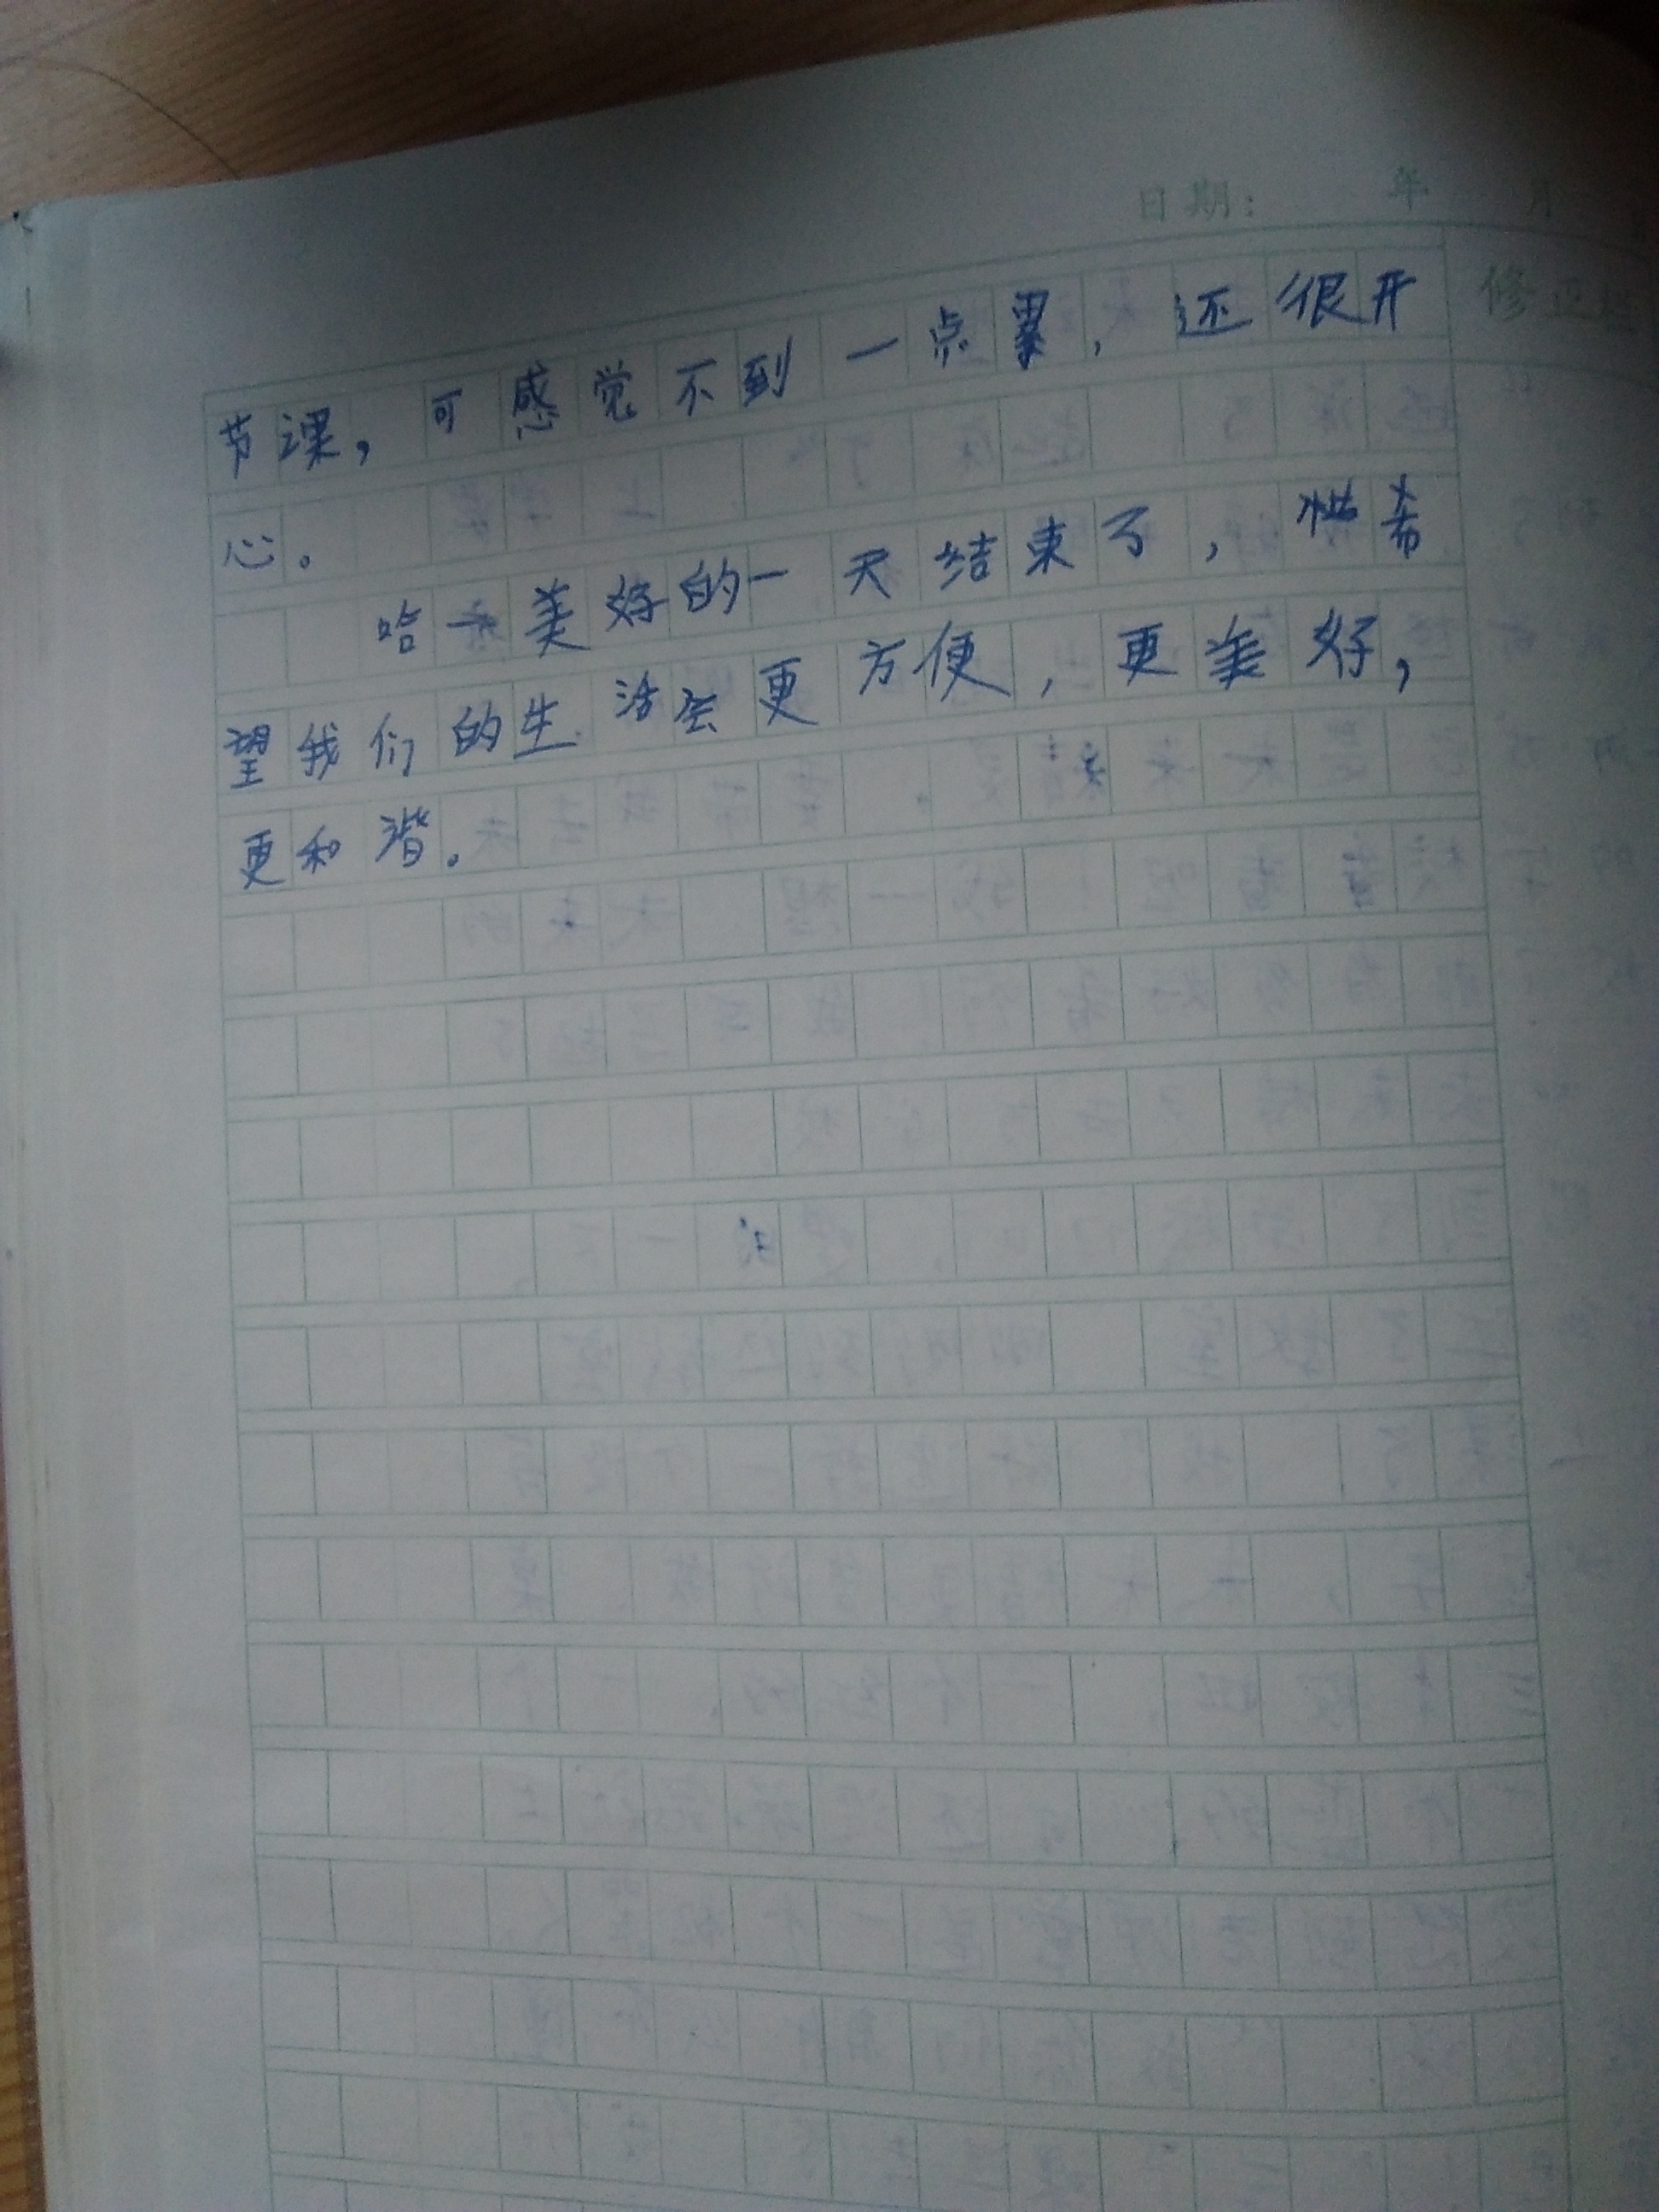 日期： 年 月
修正
节课，可感觉不到一点累，还很开
心。
哈一美好的一天结束了，希
望我们的生活会更方便，更美好，
更和谐。